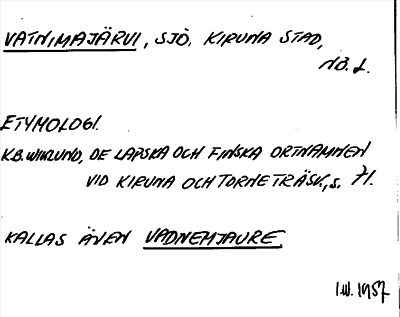 VATNIMAJÄRVI, SJÖ, KIRUNA STAD,
NB. L.
ETYMOLOGI.
K.B. WIKLUND, DE LAPSKA OCH FINSKA ORTNAMNEN
VID KIRUNA OCH TORNETRÄSK, s. 71.
KALLAS ÄVEN VADNEMJAURE.
I.W. 1957